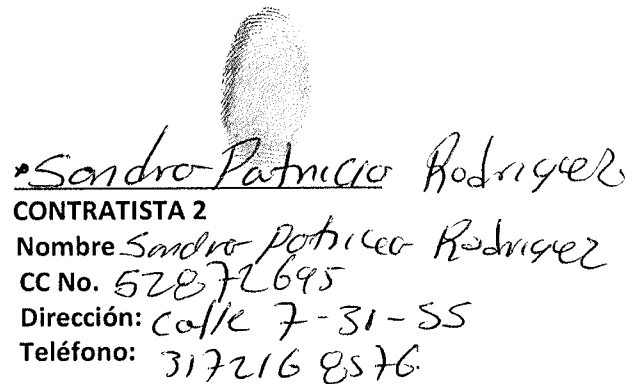 Sandra Patricia Rodriguez
CONTRATISTA 2
Nombre Sandra Patricia Rodriguez
CC No. 52872695
Dirección: Calle 7-31-55
Teléfono: 3172168576